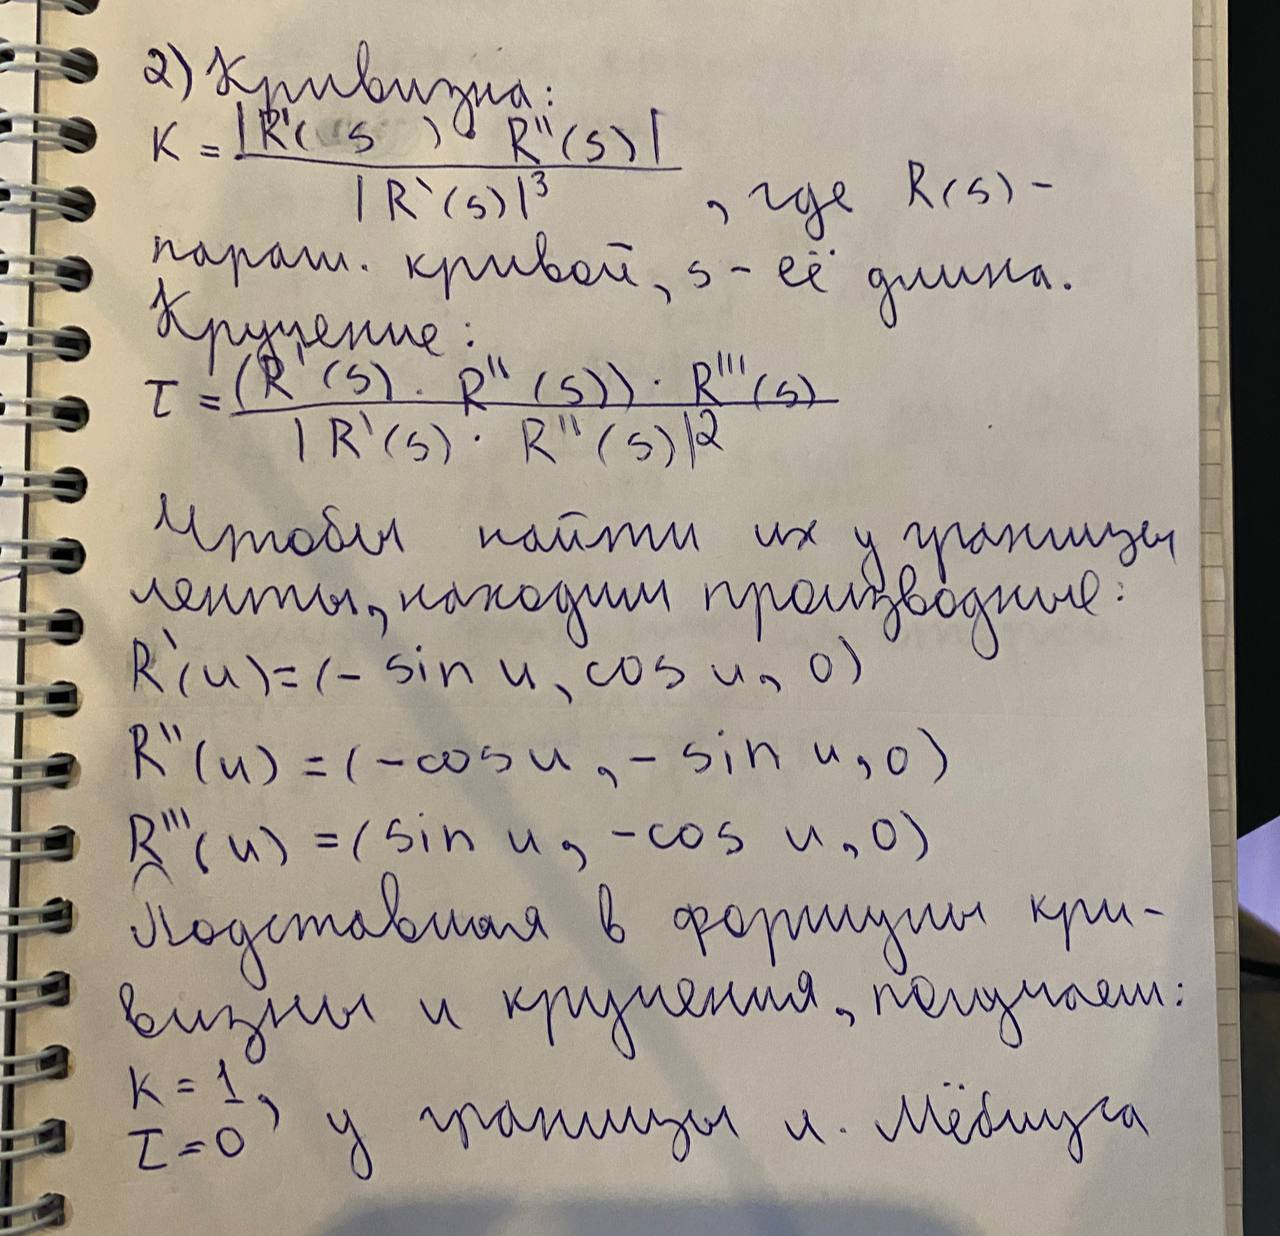 2) Кривизна:
K = |R'(s) · R''(s)|
|R'(s)|³ , где R(s) -
парам. кривой, s - её длина.
Кручение:
τ = (R'(s) · R''(s)) · R'''(s)
|R'(s) · R''(s)|²
Чтобы найти их у границы
ленты, находим производные:
R'(u) = (- sin u, cos u, 0)
R''(u) = (-cos u, - sin u, 0)
R'''(u) = (sin u, -cos u, 0)
Подставляя в формулы кри-
визны и кручения, получаем:
K = 1,
τ = 0 у границы л. Мёбиуса